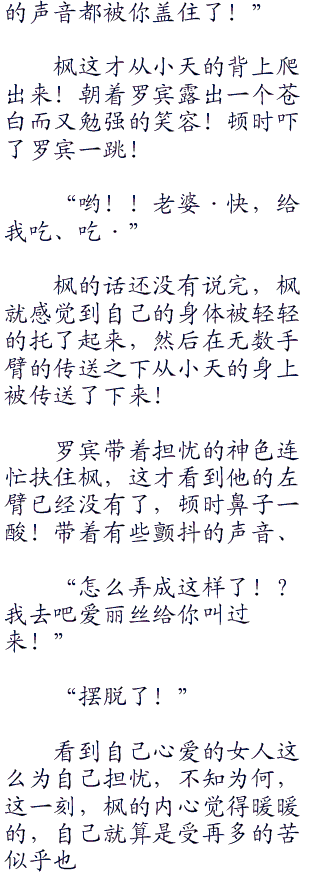 的声音都被你盖住了！”
枫这才从小天的背上爬
出来！朝着罗宾露出一个苍
白而又勉强的笑容！顿时吓
了罗宾一跳！
“哟！！老婆·快，给
我吃、吃·”
枫的话还没有说完，枫
就感觉到自己的身体被轻轻
的托了起来，然后在无数手
臂的传送之下从小天的身上
被传送了下来！
罗宾带着担忧的神色连
忙扶住枫，这才看到他的左
臂已经没有了，顿时鼻子一
酸！带着有些颤抖的声音、
“怎么弄成这样了！？
我去吧爱丽丝给你叫过
来！”
“摆脱了！”
看到自己心爱的女人这
么为自己担忧，不知为何，
这一刻，枫的内心觉得暖暖
的，自己就算是受再多的苦
似乎也